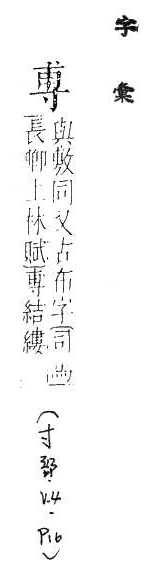 字彙
尃
與敷同又古布字司馬
長卿上林賦尃結縷
(寸部. V.4 - P16)